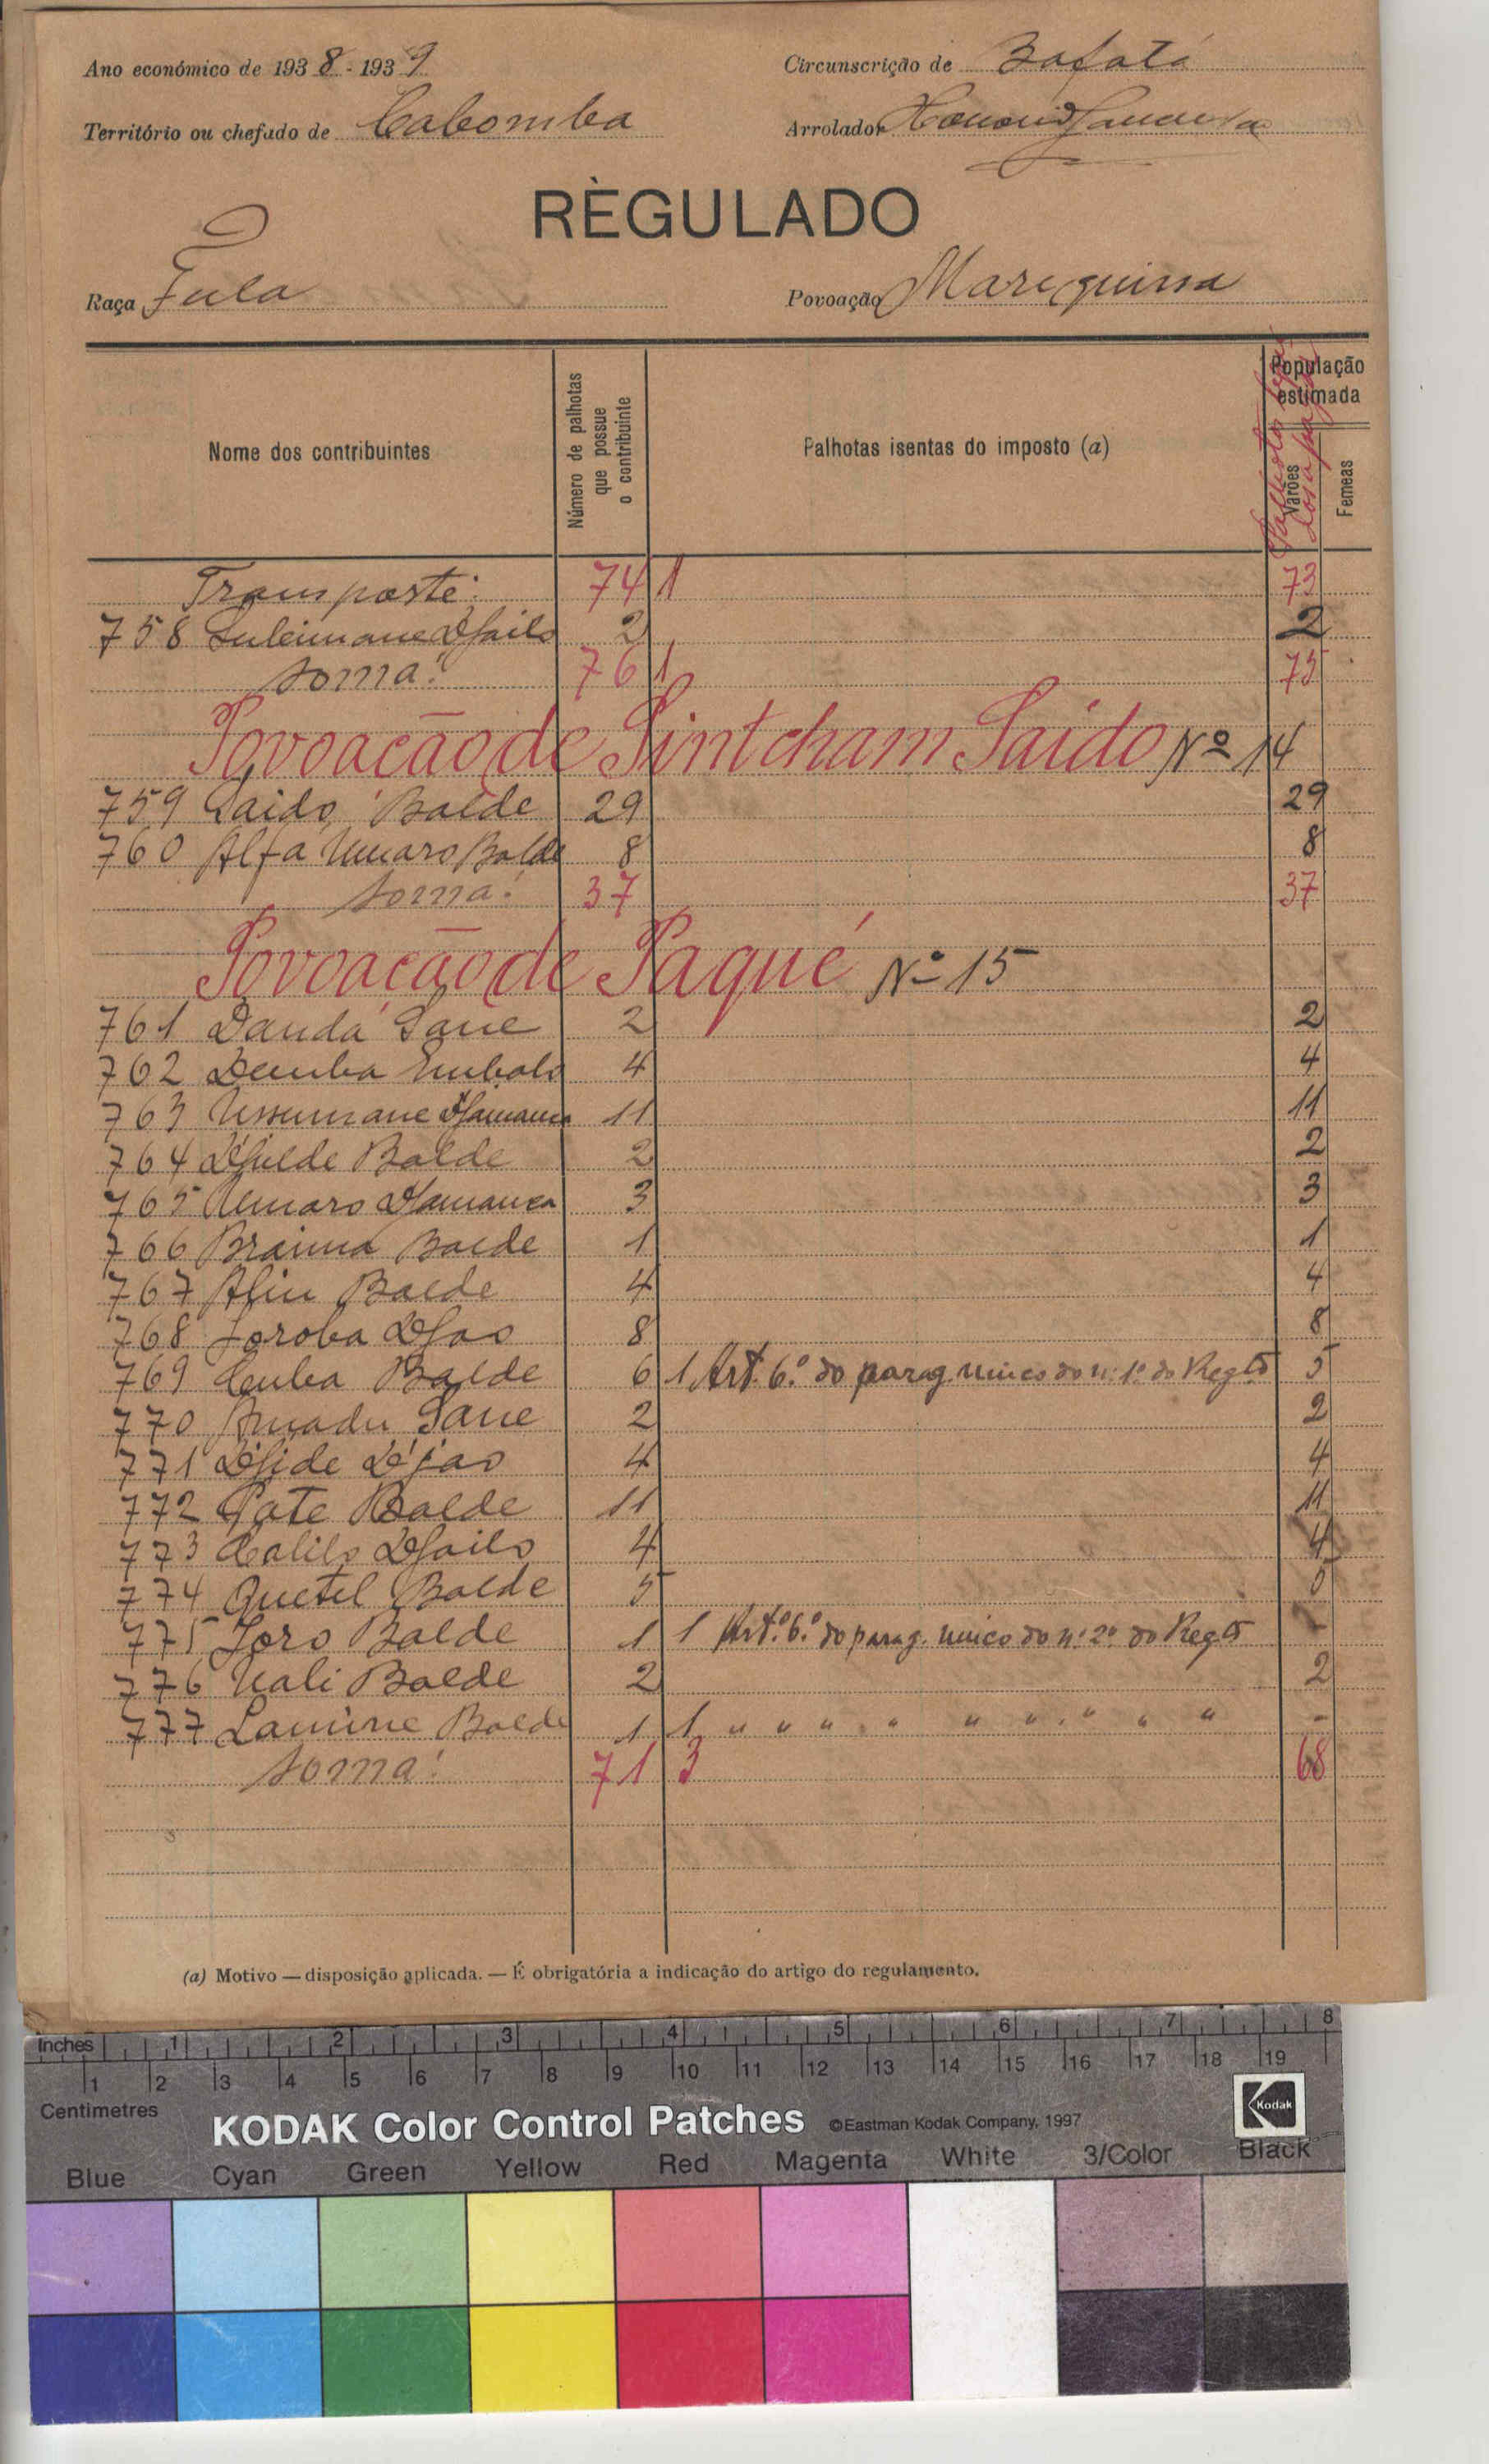 Ano económico de 1938-1939
Circunscrição de Bafatá
Território ou chefado de Cabomba
Arrolador
RÈGULADO
Raça Fula
Povoação Marequissa
Nome dos contribuintes
Número de palhotas que possue o contribuinte
Palhotas isentas do imposto (a)
População estimada
Varões
Femeas
Transporte: 74 1 73
758 Suleimane Djaló 2 2
Soma: 76 1 75
Povoação de Sintcham Saido Nº 14
759 Saido Balde 29 29
760 Alfa Umaro Balde 8 8
Soma: 37 37
Povoação de Paqué Nº 15
761 Dauda Sane 2 2
762 Demba Embalo 4 4
763 Ussumane Djamanca 11 11
764 Djulde Balde 2 2
765 Umaro Djamanca 3 3
766 Braima Balde 1 1
767 Aliu Balde 4 4
768 Joroba Djao 8 8
769 Cumba Balde 6 1 Art. 6.º do parag. unico do n.º 1.º do Regtº 5
770 Amadu Sane 2 2
771 Djide Djao 4 4
772 Pate Balde 11 11
773 Calilo Djaló 4 4
774 Quetel Balde 5 5
775 Joro Balde 1 1 Art.º 6.º do parag. unico do n.º 2.º do Regtº -
776 Uali Balde 2 2
777 Lamine Balde 1 1 " " " " " " " " " -
Soma: 71 3 68
(a) Motivo — disposição aplicada. — É obrigatória a indicação do artigo do regulamento.
Inches 1 2 3 4 5 6 7 8
1 2 3 4 5 6 7 8 9 10 11 12 13 14 15 16 17 18 19
Centimetres
KODAK Color Control Patches ©Eastman Kodak Company, 1997
Kodak
Blue Cyan Green Yellow Red Magenta White 3/Color Black